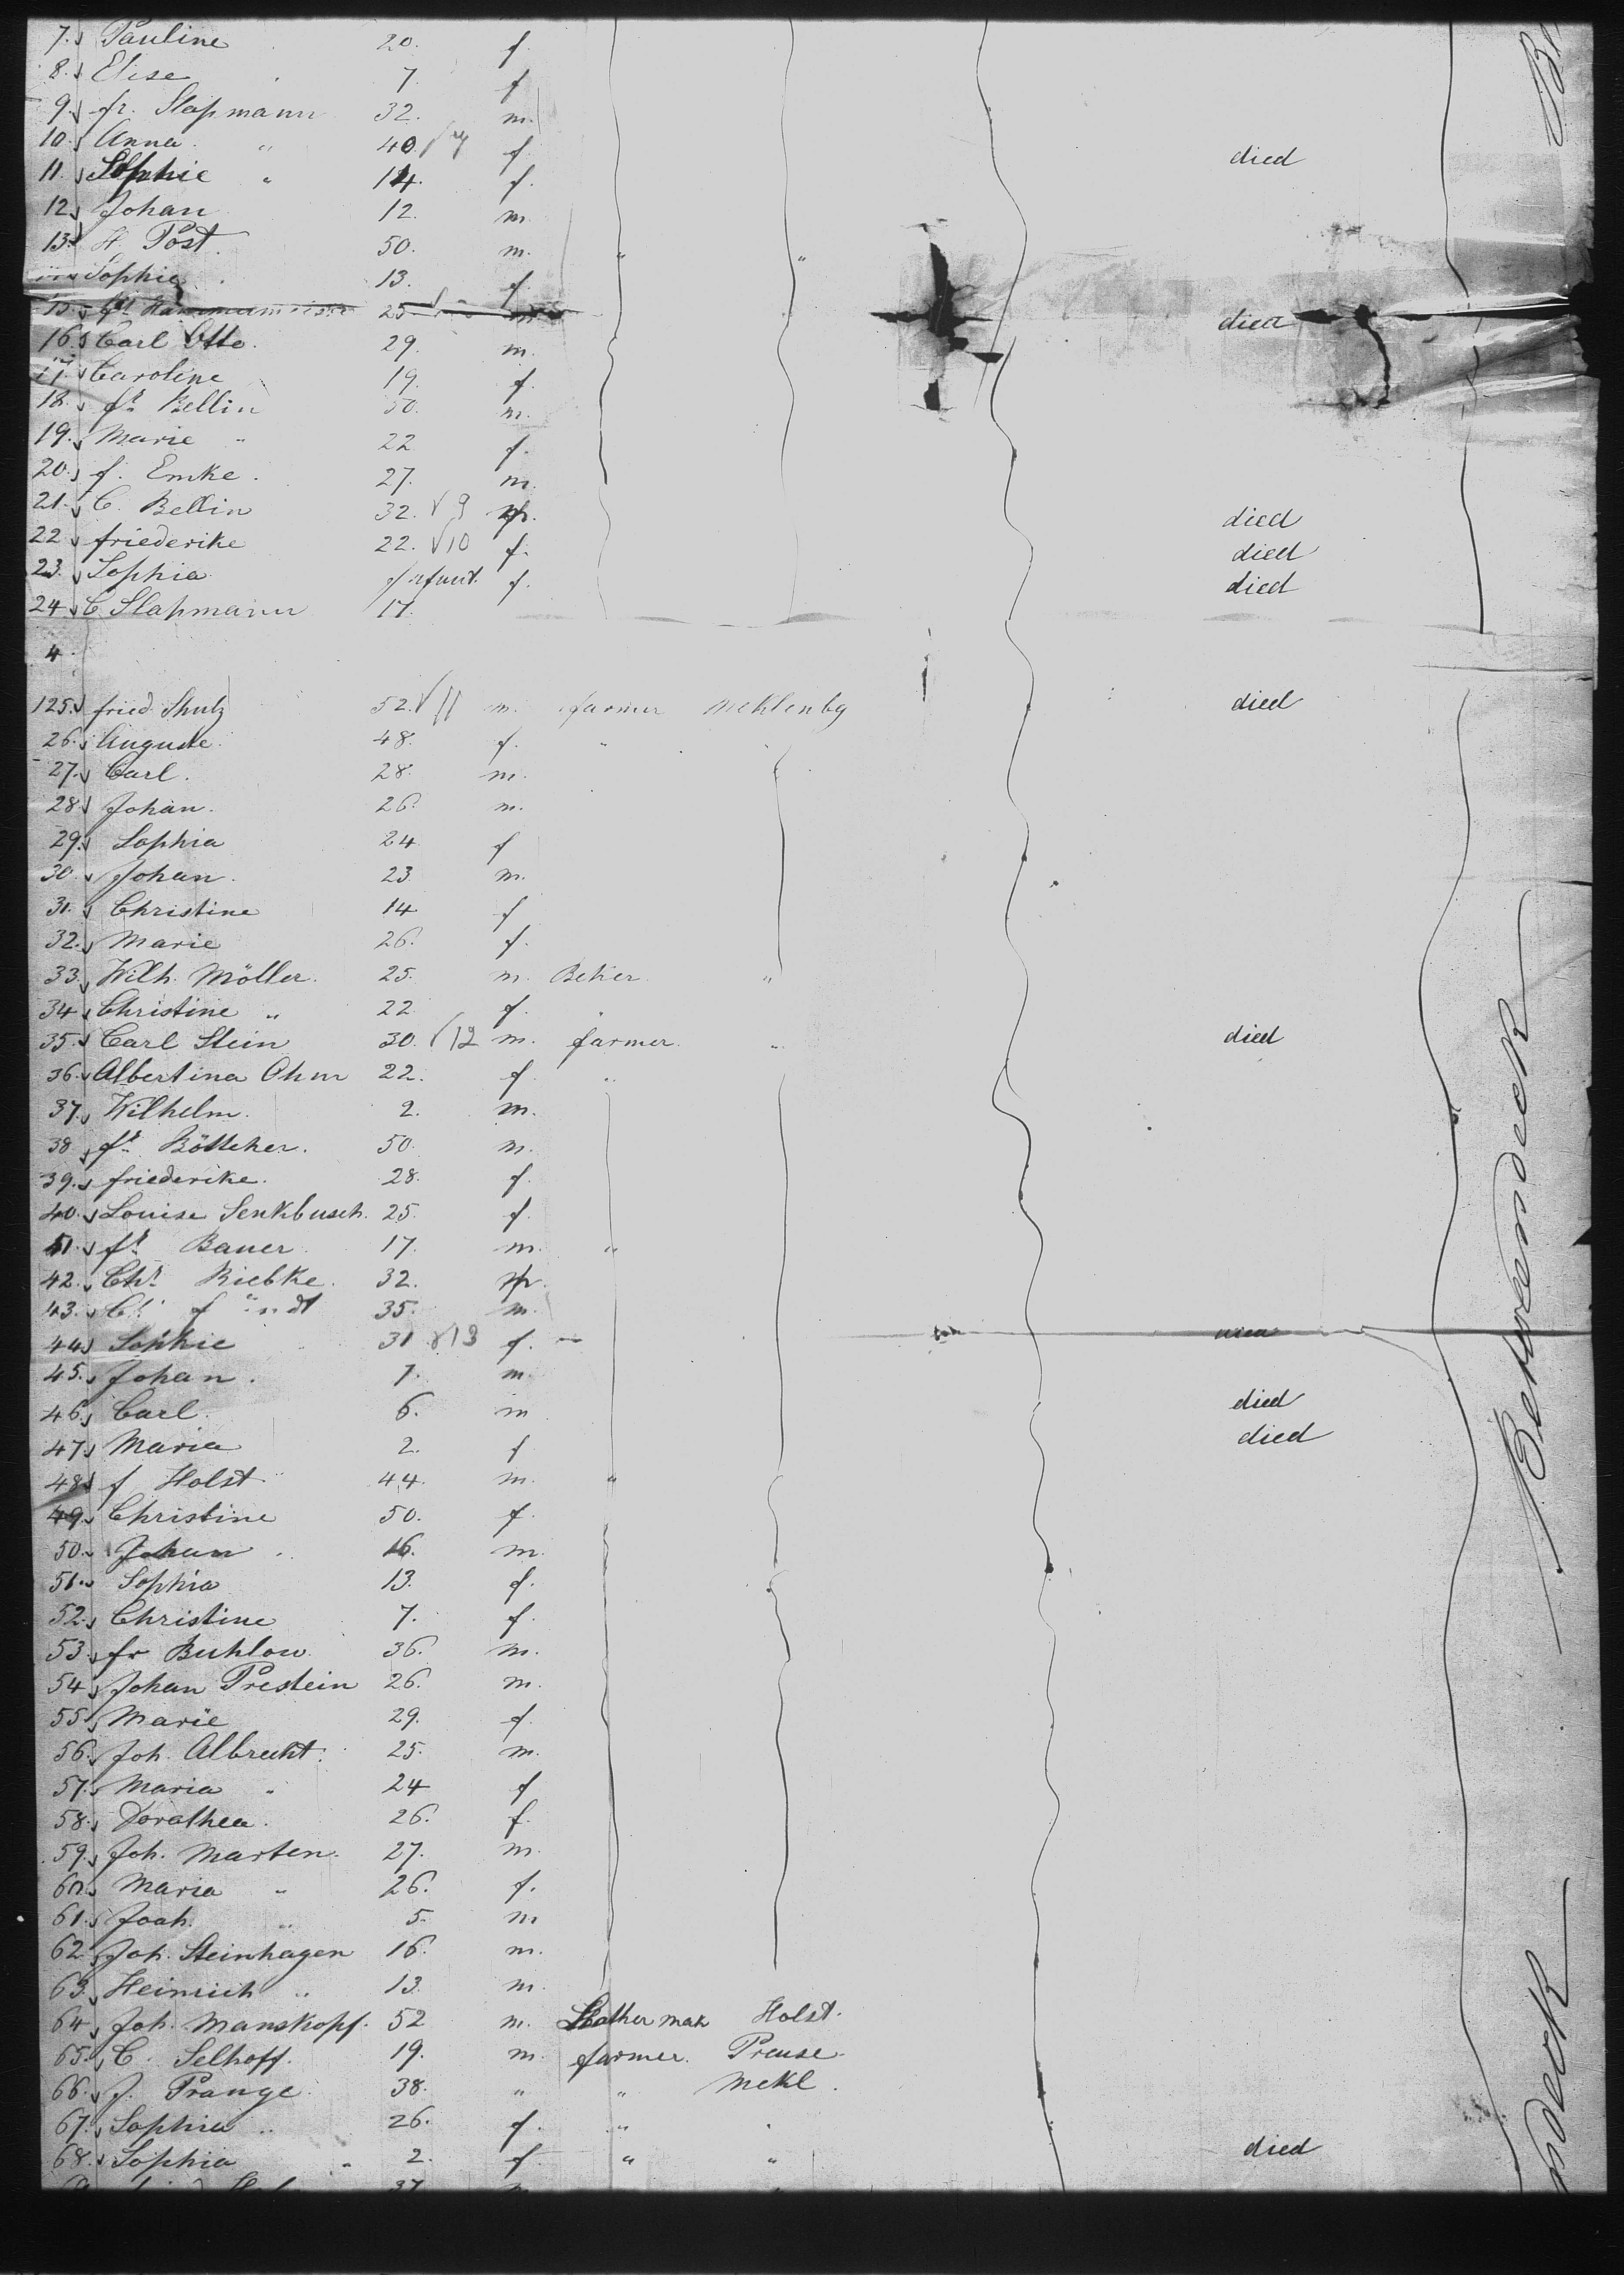 7. Pauline 20. f.
8. Elise 7. f
9. fr. Slapmann 32. m.
10. Anna " 40 f. died
11. Sophie " 14. f.
12. Johan 12. m.
13. H. Post. 50. m. " "
Sophie 13. f.
15. fr 25 died
16. Carl Otto. 29. m.
17. Caroline 19. f.
18. fr Bellin 50. m.
19. Marie " 22 f.
20. f. Emke. 27. m.
21. C. Bellin 32. 9 died
22 friederike 22. 10 f. died
23. Sophia Infant. f. died
24. C Slapmann 17.
4
125. fried Shulz 52. 11 m. farmer Meklenbg died
26. Auguste. 48. f. " "
27. Carl. 28. m.
28. Johan. 26. m.
29. Sophia 24 f
30. Johan. 23. m.
31. Christine 14 f
32. Marie 26. f.
33. Wilh. Möller. 25. m. Beker "
34. Christine " 22 f. "
35. Carl Stein 30. 12 m. farmer. " died
36. Albertina Ohm 22. f. "
37. Wilhelm. 2. m.
38 fr Böttcher. 50. m.
39. friederike. 28. f.
40. Louise Senkbusch. 25. f.
41. fr Bauer 17. m. "
42. Chr Riebke. 32.
43. 35. m.
44 Sophie 31 13 f. died
45. Johan. 7. m.
46. Carl. 6. m died
47. Maria 2. f died
48. f Holst 44. m. "
49. Christine 50. f.
50. Johan. 16. m.
51. Sophia 13. f.
52. Christine 7. f.
53. fr Buhlow 36. m.
54. Johan Prestein 26. m.
55. Marie 29. f.
56. Joh. Albrecht. 25. m.
57. Maria " 24 f
58. Dorathea. 26. f.
59. Joh. Marten. 27. m.
60. Maria " 26. f.
61. Joah. " 5. m
62. Joh. Steinhagen 16. m.
63. Heinrich " 13. m.
64. Joh. Manskopf. 52 m. mak Holst.
65. C. Selhoff. 19. m. farmer. Preuse.
66. J. Prange 38. " " Mekl.
67. Sophia " 26. f. " "
68. Sophia " 2. f " " died
37
Betweendeck